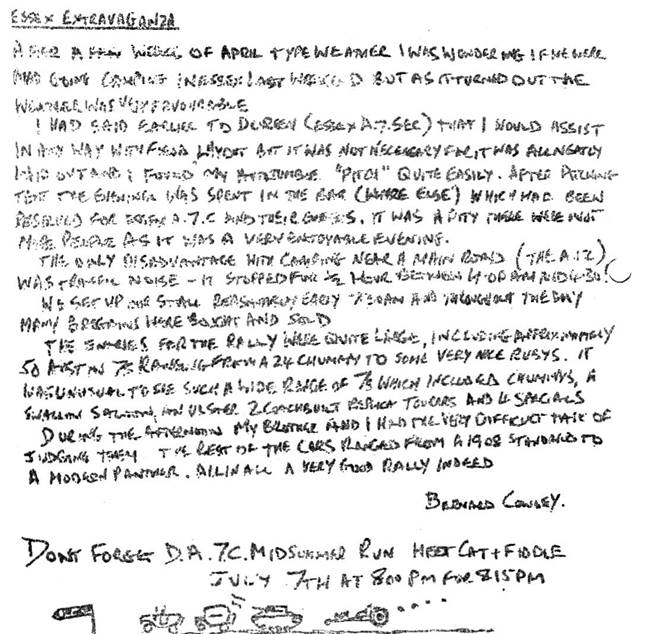 ESSEX EXTRAVAGANZA
AFTER A FEW WEEKS OF APRIL TYPE WEATHER I WAS WONDERING IF WE WERE
MAD GOING CAMPING IN ESSEX LAST WEEKEND BUT AS IT TURNED OUT THE
WEATHER WAS VERY FAVOURABLE
I HAD SAID EARLIER TO DOREEN (ESSEX A.7. SEC) THAT I WOULD ASSIST
IN ANY WAY WITH FIELD LAYOUT BUT IT WAS NOT NECESSARY FOR IT WAS ALL NEATLY
LAID OUT AND I FOUND MY "PITCH" QUITE EASILY. AFTER PITCHING
TENT THE EVENING WAS SPENT IN THE BAR (WHERE ELSE) WHICH HAD BEEN
RESERVED FOR ESSEX A.7.C AND THEIR GUESTS. IT WAS A PITY THERE WERE NOT
MORE PEOPLE AS IT WAS A VERY ENJOYABLE EVENING.
THE ONLY DISADVANTAGE WITH CAMPING NEAR A MAIN ROAD (THE A.12)
WAS TRAFFIC NOISE - IT STOPPED FOR ½ HOUR BETWEEN 4.0 AM AND 4.30!
WE SET UP OUR STALL REASONABLY EARLY 7.30AM AND THROUGHOUT THE DAY
MANY BARGAINS WERE BOUGHT AND SOLD
THE ENTRIES FOR THE RALLY WERE QUITE LARGE, INCLUDING APPROXIMATELY
50 AUSTIN 7s RANGING FROM A 24 CHUMMY TO SOME VERY NICE RUBYS. IT
WAS UNUSUAL TO SEE SUCH A WIDE RANGE OF 7s WHICH INCLUDED CHUMMYS, A
SWALLOW SALOON, AN ULSTER 2 COACHBUILT REPLICA TOURERS AND 4 SPECIALS
DURING THE AFTERNOON MY BROTHER AND I HAD THE VERY DIFFICULT TASK OF
JUDGING THEM THE REST OF THE CARS RANGED FROM A 1908 STANDARD TO
A MODERN PANTHER. ALL IN ALL A VERY GOOD RALLY INDEED
BERNARD COWLEY.
DONT FORGET D.A.7C. MIDSUMMER RUN MEET CAT + FIDDLE
JULY 7TH AT 800 PM FOR 815PM